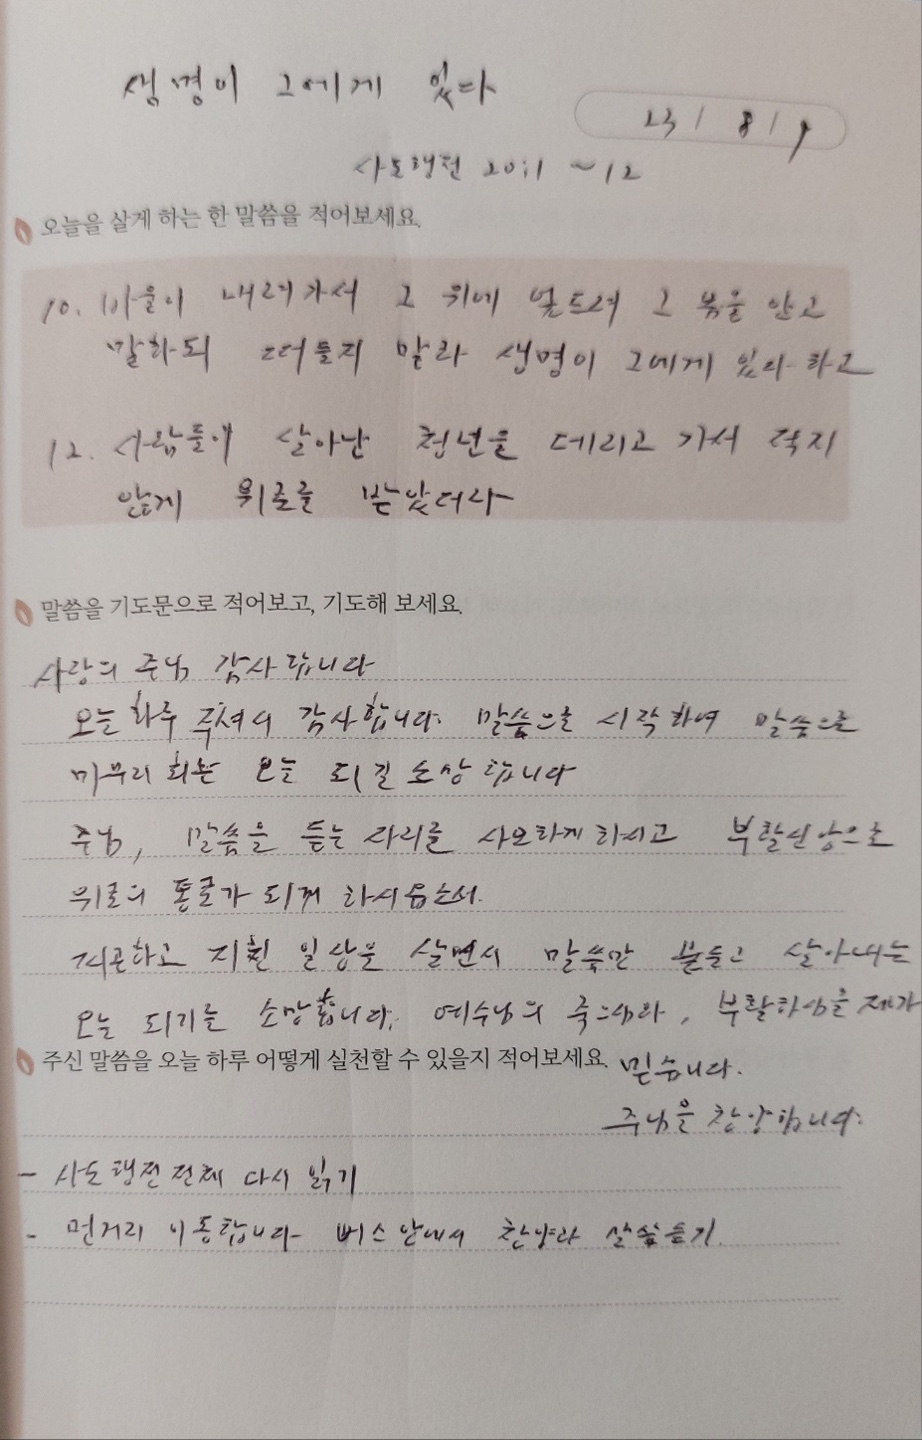 생명이 그에게 있다
23 / 8 / 9
사도행전 20:1 ~12
오늘을 살게 하는 한 말씀을 적어보세요.
10. 바울이 내려가서 그 위에 엎드려 그 몸을 안고
말하되 떠들지 말라 생명이 그에게 있다 하고
12. 사람들이 살아난 청년을 데리고 가서 적지
않게 위로를 받았더라
말씀을 기도문으로 적어보고, 기도해 보세요.
사랑의 주님 감사합니다
오늘 하루 주셔서 감사합니다. 말씀으로 시작하여 말씀으로
마무리 하는 오늘 되길 소망합니다
주님, 말씀을 듣는 자리를 사모하게 하시고 부활신앙으로
위로의 통로가 되게 하시옵소서.
피곤하고 지친 일상을 살면서 말씀만 붙들고 살아내는
오늘 되기를 소망합니다. 예수님의 죽으심과, 부활하심을 제가
주신 말씀을 오늘 하루 어떻게 실천할 수 있을지 적어보세요.
믿습니다.
주님을 찬양합니다.
- 사도행전 전체 다시 읽기
- 먼거리 이동합니다 버스안에서 찬양과 말씀듣기.